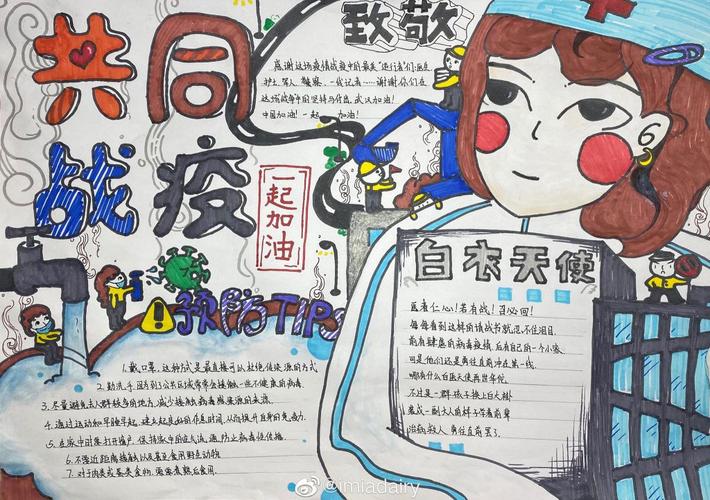 共同
战疫
一起加油
致敬
感谢这场疫情战役中的最美"逆行者"们:医生
护士、军人、警察、一线记者……谢谢你们在
这场战争中的坚持与付出,武汉加油!
中国加油!一起加油!
预防TIPS
1.戴口罩,这种方式是最直接可以杜绝传染源的方式
2.勤洗手,因为到公共区域常常会接触一些不健康的病毒.
3.尽量避免去人群较多的地方,减少接触病毒感染源的来源.
4.通过运动和早睡早起,建立起良好的作息时间,从而提升自身的免疫力.
5.在家中时常打开窗户,保持家中的空气流通,防止病毒性传播.
6.不靠近、距离接触以及蛋白食用野生动物
7.对于肉类或蛋类食物,需要煮熟后食用.
白衣天使
医者仁心!若有战!召必回!
每每看到这样的请战书就忍不住泪目.
前有肆虐的病毒疫情,后有自己的一个小家,
可是他们还是勇往直前冲在第一线.
哪有什么白医天使再世华佗,
不过是一群孩子换上白大褂
治病救人,勇往直前罢了.
@imiadairy